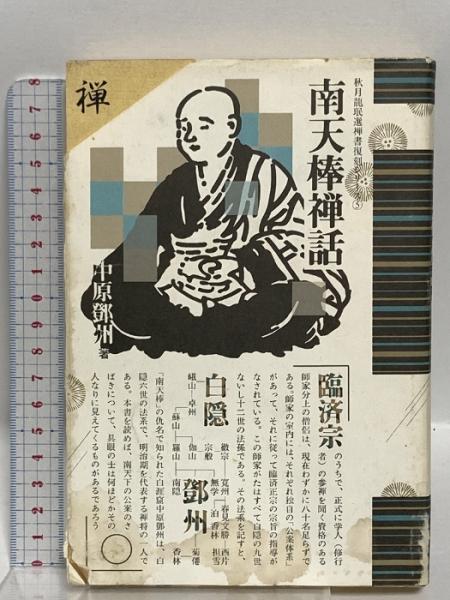 秋月龍珉選禅書復刻
⑤
南天棒禅話
禅
中原鄧州 著
臨済宗
のうちで、"正式に学人(修行
者)の参禅を聞く資格のある
師家分上の僧侶は、現在わずかに八十名足らずで
ある。師家の室内には、それぞれ独自の「公案体系」
があって、それに従って臨済正宗の宗旨の指導が
なされている。この師家がたはすべて白隠の九世
ないし十二世の法孫である。その法系を記すと、
白隠
峨山
卓州
蘇山
羅山
伽山
南隠
宗般
無学
鄧州
香林
「南天棒」の仇名で知られた白涯窟中原鄧州は、白
隠六世の法系で、明治期を代表する禅将の一人で
ある。本書を読めば、南天下の公案のさ
ばきについて、具眼の士は何ほどかその
人なりに見えてくるものがあるであろう
0 1 2 3 4 5 6 7 8